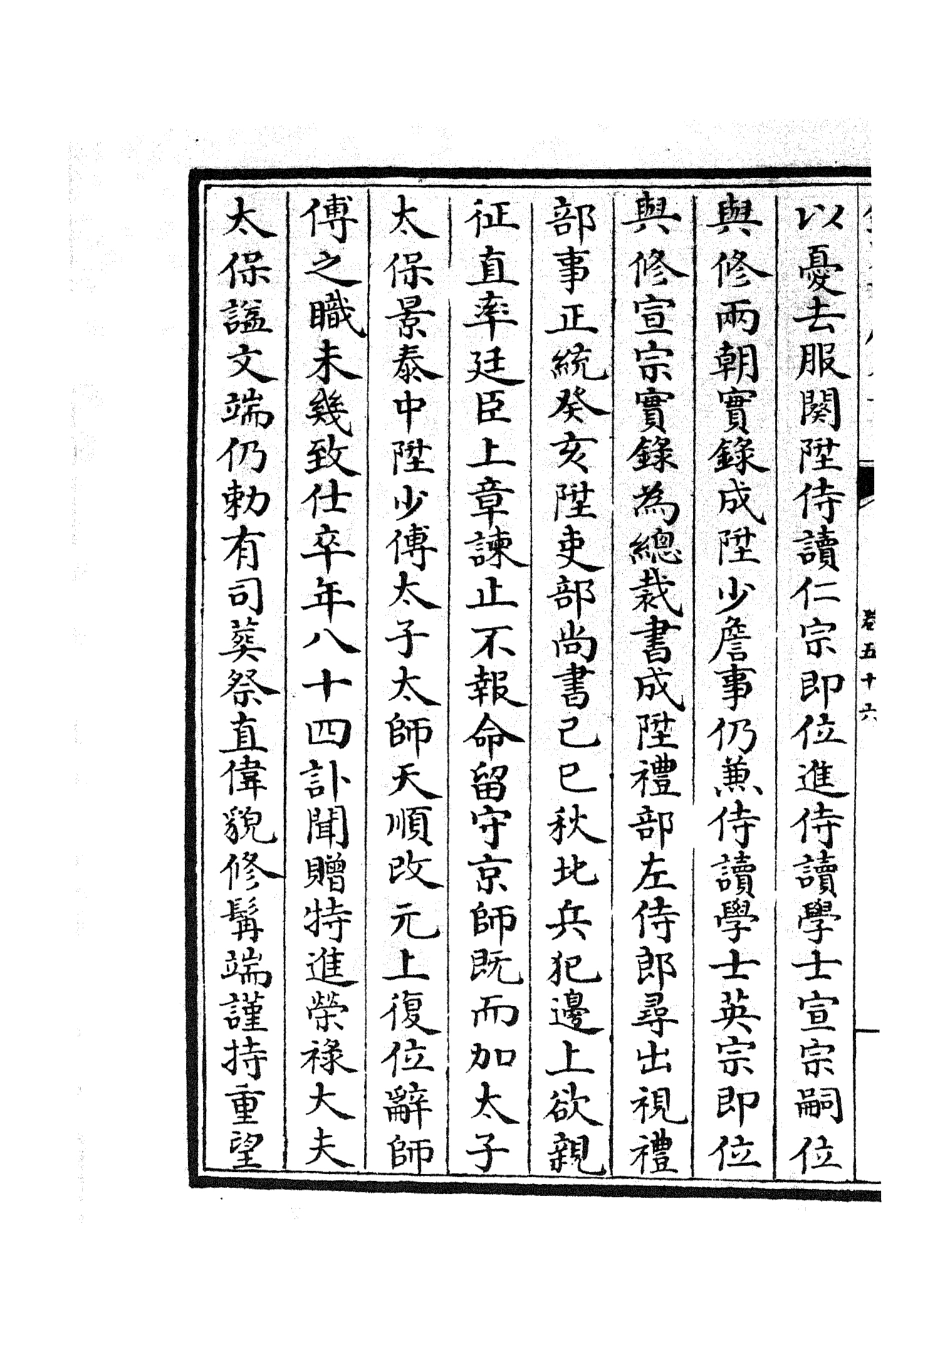 卷五十六
以憂去服闋陞侍讀仁宗即位進侍讀學士宣宗嗣位
與修兩朝實錄成陞少詹事仍兼侍讀學士英宗即位
與修宣宗實錄為總裁書成陞禮部左侍郎尋出視禮
部事正統癸亥陞吏部尚書己巳秋北兵犯邊上欲親
征直率廷臣上章諫止不報命留守京師既而加太子
太保景泰中陞少傅太子太師天順改元上復位辭師
傅之職未幾致仕卒年八十四訃聞贈特進榮祿大夫
太保諡文端仍勅有司葬祭直偉貌修髯端謹持重望